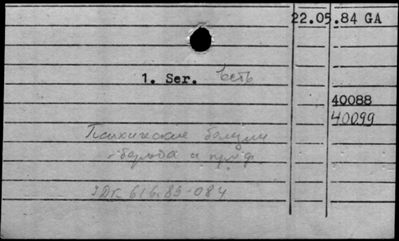 22.05.84 GA
1. Ser. есть
40088
40099
Психические болезни
- борьба и проф.
УДК 616.89-084